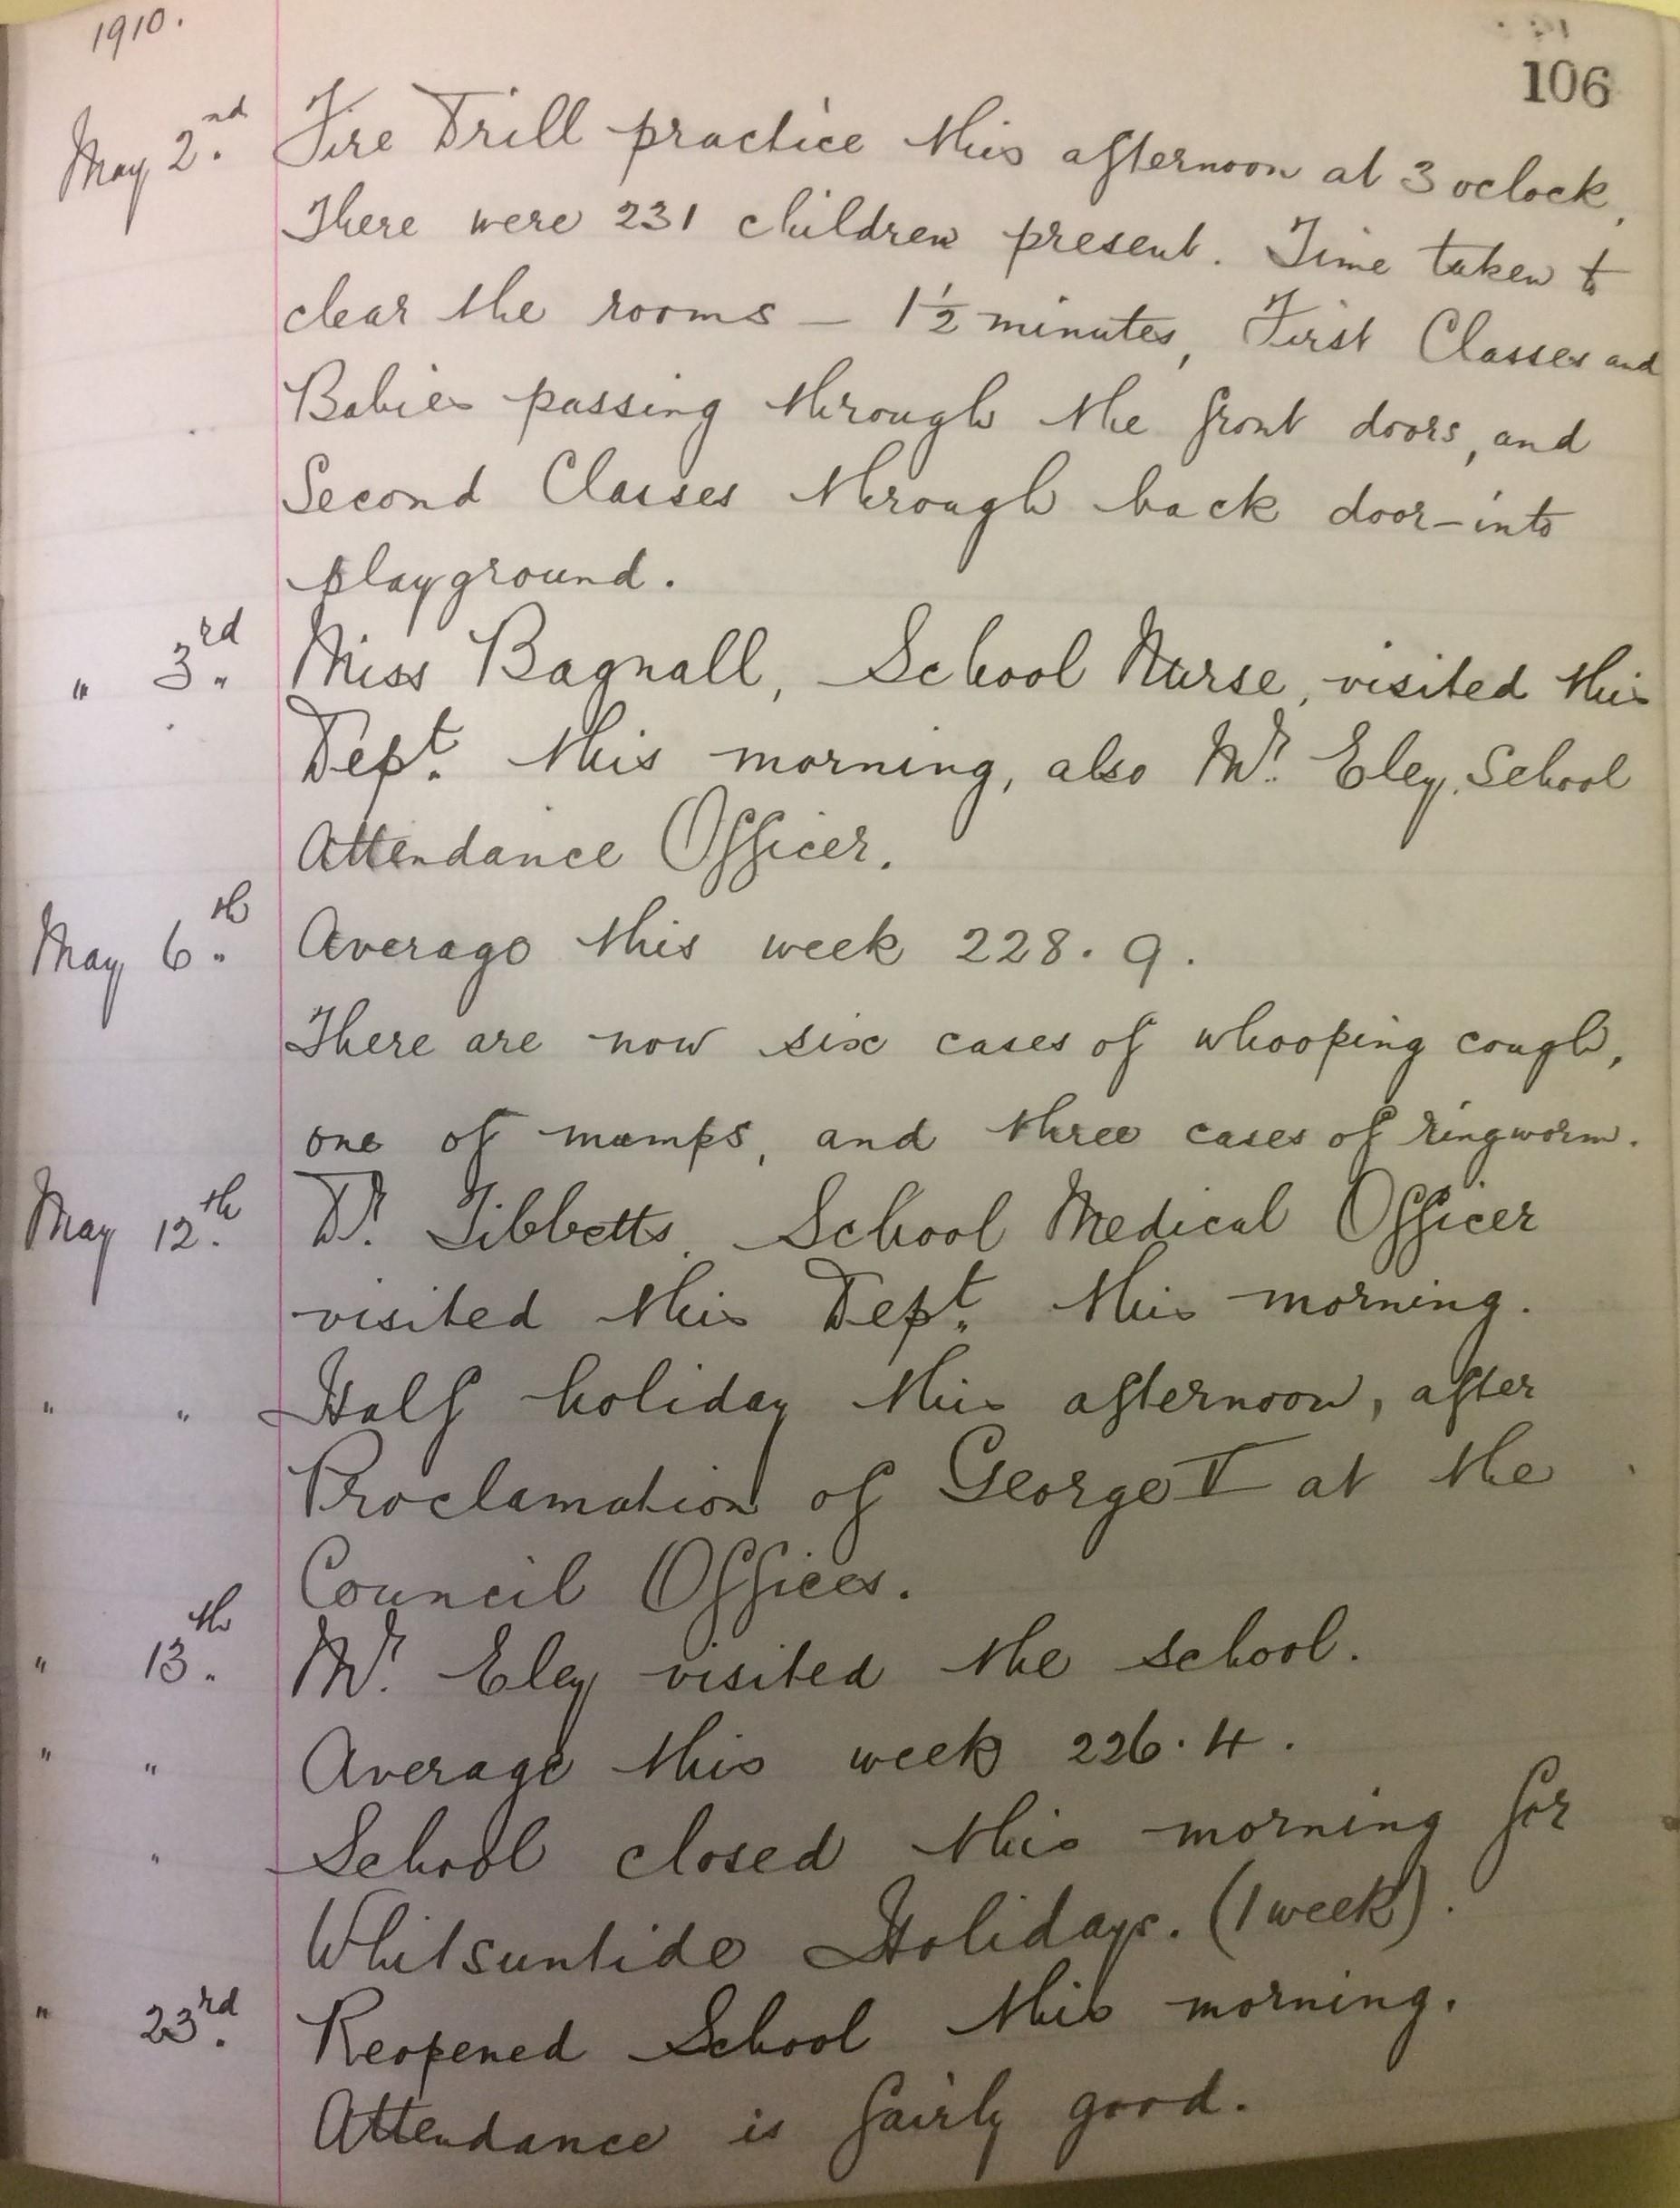 1910.
106
May 2nd. Fire Drill practice this afternoon at 3 oclock.
There were 231 children present. Time taken to
clear the rooms — 1½ minutes, First Classes and
Babies passing through the front doors, and
Second Classes through back door - into
playground.
" 3rd. Miss Bagnall, School Nurse, visited this
Dept. this morning, also Mr. Eley, School
Attendance Officer.
May 6th. Average this week 228.9.
There are now six cases of whooping cough,
one of mumps, and three cases of ringworm.
May 12th. Dr. Tibbetts. School Medical Officer
visited this Dept. this morning.
" " Half holiday this afternoon, after
Proclamation of George V at the
Council Offices.
" 13th. Mr. Eley visited the school.
" " Average this week 226.4.
" School closed this morning for
Whitsuntide Holidays. (1 week).
" 23rd. Reopened School this morning.
Attendance is fairly good.